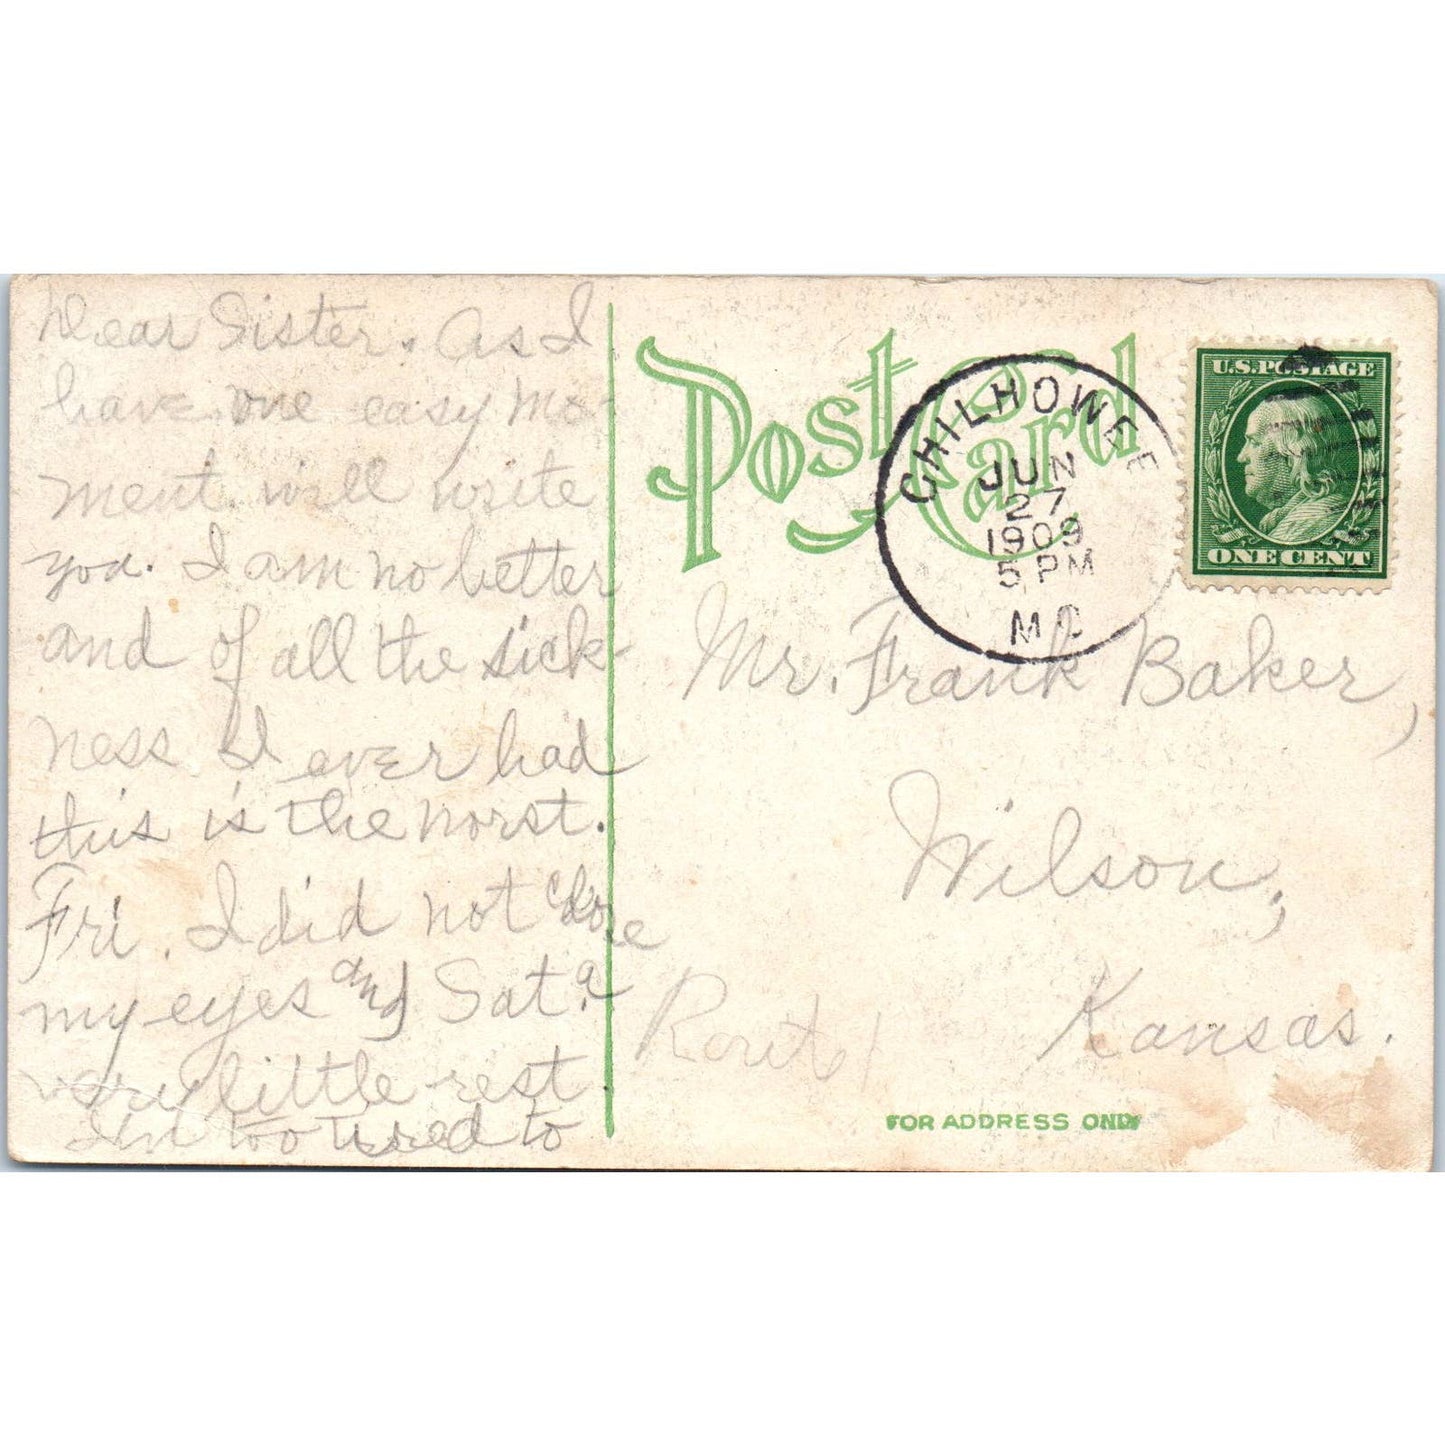 Dear Sister. As I
have one easy mo-
ment will write
you. I am no better
and of all the sick-
ness I ever had
this is the worst.
Fri. I did not close
my eyes and Sat. a
very little rest
Im too tired to
Post Card
CHILHOWEE
JUN
27
1909
5 PM
MO
U.S. POSTAGE
ONE CENT
Mr. Frank Baker,
Wilson,
Kansas.
Route 1
FOR ADDRESS ONLY